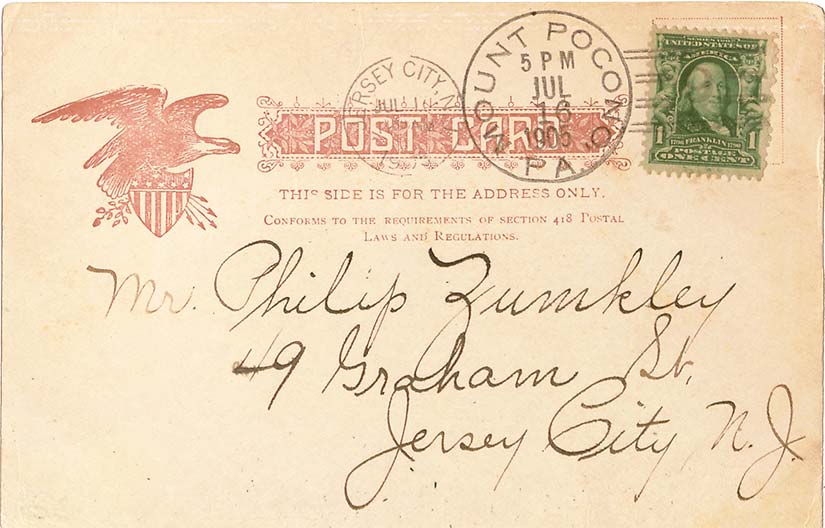 JERSEY CITY, N.J.
JUL 16
MOUNT POCONO,
PA.
5 PM
JUL
16
1905
SERIES 1902
UNITED STATES OF
AMERICA
1706 FRANKLIN 1790
1 POSTAGE 1
ONE CENT
POST CARD.
THIS SIDE IS FOR THE ADDRESS ONLY.
CONFORMS TO THE REQUIREMENTS OF SECTION 418 POSTAL
LAWS AND REGULATIONS.
Mr. Philip Zumkley
49 Graham St,
Jersey City N.J.